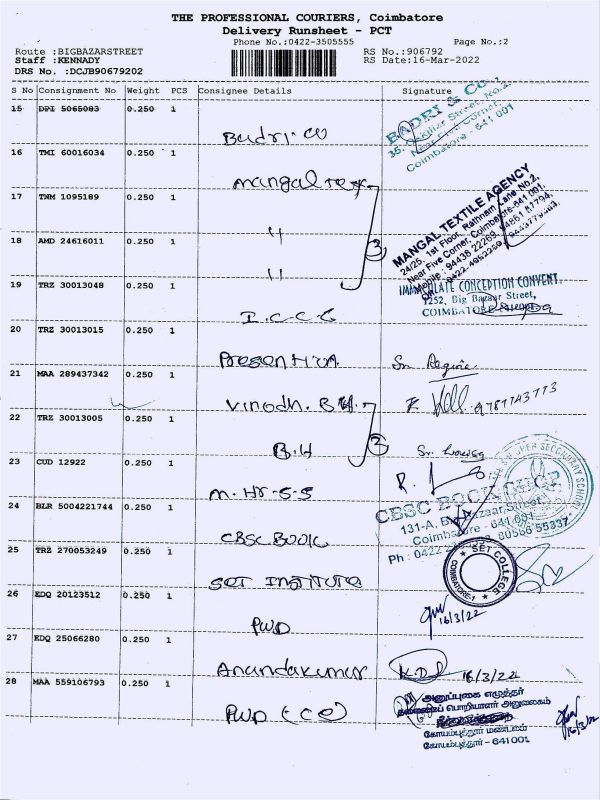 THE PROFESSIONAL COURIERS, Coimbatore
Delivery Runsheet - PCT
Phone No.:0422-3505555 Page No.:2
Route :BIGBAZARSTREET RS No.:906792
Staff :KENNADY RS Date:16-Mar-2022
DRS No. :DCJB90679202
S No Consignment No Weight PCS Consignee Details Signature
15 DPI 5065083 0.250 1
Badri. co
BADRI & CO.
Near Five Corner,
Coimbatore - 641 001
16 TMI 60016034 0.250 1
Mangal Tex
17 TNM 1095189 0.250 1
"
MANGAL TEXTILE AGENCY
24/25, 1st Floor, Rathnam Lane No.2,
Near Five Corner, Coimbatore-641 001.
18 AMD 24616011 0.250 1
"
3
19 TRZ 30013048 0.250 1
I.C.C.C
IMMACULATE CONCEPTION CONVENT,
1252, Big Bazaar Street,
COIMBATORE
20 TRZ 30013015 0.250 1
Presention
21 MAA 289437342 0.250 1
Vinodh. B.H.
9787743773
22 TRZ 30013005 0.250 1
B.H
2
23 CUD 12922 0.250 1
M. Hr. S. S
24 BLR 5004221744 0.250 1
CBSC Book
CBSC BOOK SHOP
131-A, Big Bazaar Street,
Coimbatore - 641 001
25 TRZ 270053249 0.250 1
SET INSTITUTE
SET COLLEGE
COIMBATORE-1
26 EDQ 20123512 0.250 1
PWD
16/3/22
27 EDQ 25066280 0.250 1
Anandakumar
16/3/22
28 MAA 559106793 0.250 1
PWD (CE)
அனுப்புகை எழுத்தர்
பொறியாளர் அலுவலகம்
கோயம்புத்தூர் மண்டலம்
கோயம்புத்தூர் - 641 001
16/3/22